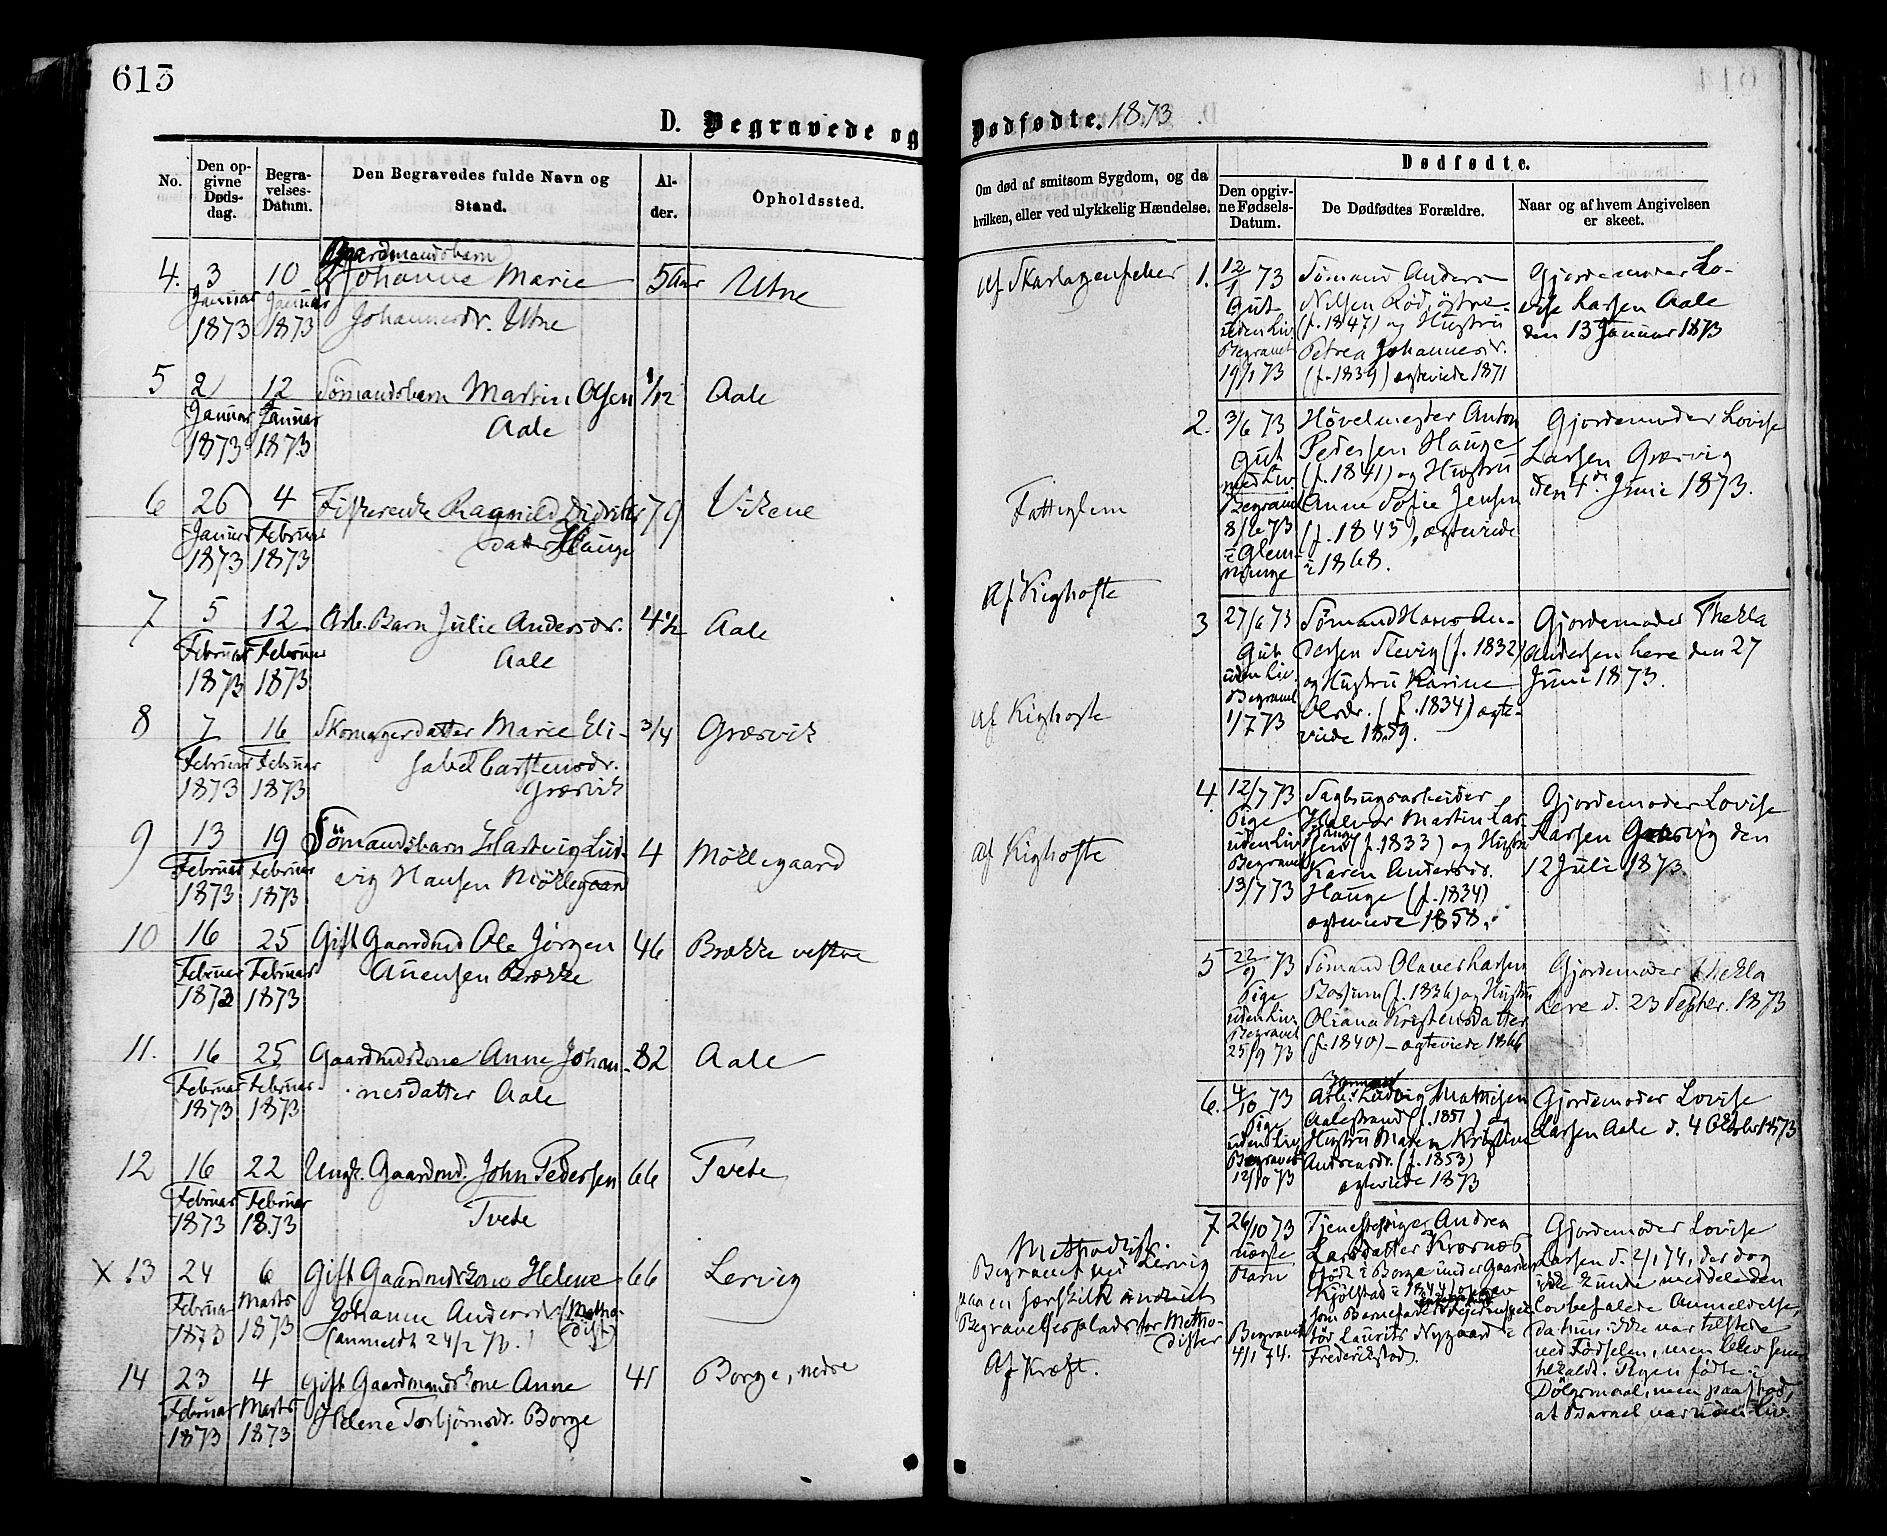 613
D. Begravede og
No.
Den op-
givne
Døds-
dag.
Begra-
velses-
Datum.
Den Begravedes fulde Navn og
Stand.
Al-
der.
Opholdssted.
Gaardmandsbarn
4. 3 10 Johanne Marie 5 Aar Utne
Januar Januar
1873 1873 Johannesdr. Utne
5 2 12 Sømandsbarn Martin Olsen 1/12 Aale
Januar Januar Aale
1873 1873
6 26 4 Fisherenke Ragnild Didriks 79 Vikene
Januar Februar datter Hauge
1873 1873
7 5 12 Arb. Barn Julie Andersdr. 4 1/2 Aale
Februar Februar Aale
1873 1873
8 7 16 Skomagerdatter Marie Eli- 3/4 Græsvik
Februar Februar sabet Carstensdr.
1873 1873 Græsvik
9 13 19 Sømandsbarn Hartvig Lud- 4 Møklegaard
Februar Februar vig Hansen Møklegaard
1873 1873
10 16 25 Gift Gaardmd Ole Jørgen 46 Brække vestre
Februar Februar Auensen Brække
1873 1873
11. 16 25 Gaardmdskone Anne Johan- 82 Aale
Februar Februar nesdatter Aale
1873 1873
12 16 22 Ungk. Gaardmd. John Pedersen 66 Tvete
Februar Februar Tvete
1873 1873
X 13 24 6 Gift Gaardmdskone Helene 66 Lervig
Februar Marts Johanne Andersdr (Metho-
1873 1873 (anmeldt 24/2 73.) dist)
14 23 4 Gift Gaardmandskone Anne 41 Borge, nedre
Februar Marts Helene Torbjørnsdr. Borge
1873 1873
Dødfødte. 1873
Om død af smitsom Sygdom, og da
hvilken, eller ved ulykkelig Hændelse.
Dødfødte.
Den opgiv-
ne Fødsels-
Datum.
De Dødfødtes Forældre.
Naar og af hvem Angivelsen
er skeet.
Af Skarlagensfeber
Fattiglem
Af Kighoste
Af Kighoste
Af Kighoste
Methodist.
Begravet ved Lervig
paa en særskilt indviet
Begravelsesplads for Metho-
dister
Af Kræft.
1. 12/1 73 Sømand Anders Gjordemoder Lo-
Gut Nilsen Rød, østre vise Larsen Aale
uden Liv (f. 1847) og Hustru den 13 Januar 1873
Begravet Petrea Johannesdr.
19/1 73 (f. 1839) ægteviede 1871
2. 3/6 73 Høvelmester Anton Gjordemoder Lovise
Gut Pedersen Hauge Larsen Græsvig
med Liv (f. 1841) og Hustru den 4de Juni 1873.
Begravet Anne Sofie Jensen
8/6 73 (f. 1845), ægteviede
i Glem- i 1868.
minge
3 27/6 73 Sømand Hans An- Gjordemoder Thekla
Gut dersen Slevig (f. 1832) Andersen Lere den 27
uden Liv. og Hustru Karine Juni 1873.
Begravet Olsdr. (f. 1834) ægte-
1/7 73 viede 1859.
4. 12/7 73 Sagbrugsarbeider Gjordemoder Lovise
Pige Halvor Martin Lar- Larsen Græsvig den
uden Liv sen Hauge (f. 1833) og Hustru 12 Juli 1873.
Begravet Karen Andersdr.
13/7 73 Hauge (f. 1834)
ægteviede 1858.
5 22/9 73 Sømand Olaves Larsen Gjordemoder Thekla
Pige (f. 1836) og Hustru Lere d. 23 Septber. 1873
uden Liv. Oliana Kristensdatter
Begravet (f. 1840) – ægteviede 1866
25/9 73
6. 4/10 73 Arb. Ludvig Mathisen Gjordemoder Lovise
Pige Aalestrand (f. 1851) og Larsen Aale d. 4 Oktober 1873
uden Liv Hustru Maren Kristine
Begravet Andreasdr. (f. 1853)
12/10 73 ægteviede 1873
7 26/10 73 Tjenestepige Andrea Gjordemoder Lovise
uægte Larsdatter Krærnæs Larsen d. 2/1 74, der dog
Barn født i Borge under Gaarden ikke kunde meddele den
Kjølstad i 1844, opgav lovbefalede Anmeldelse,
som Barnefader da hun ikke var tilstede
Begravet Laurits Nygaard i ved Fødselen, men blev senere
4/1 74. Frederikstad. tilkaldt. Pigen fødte i
Dølgsmaal, men paastod,
at Barnet var uden Liv.